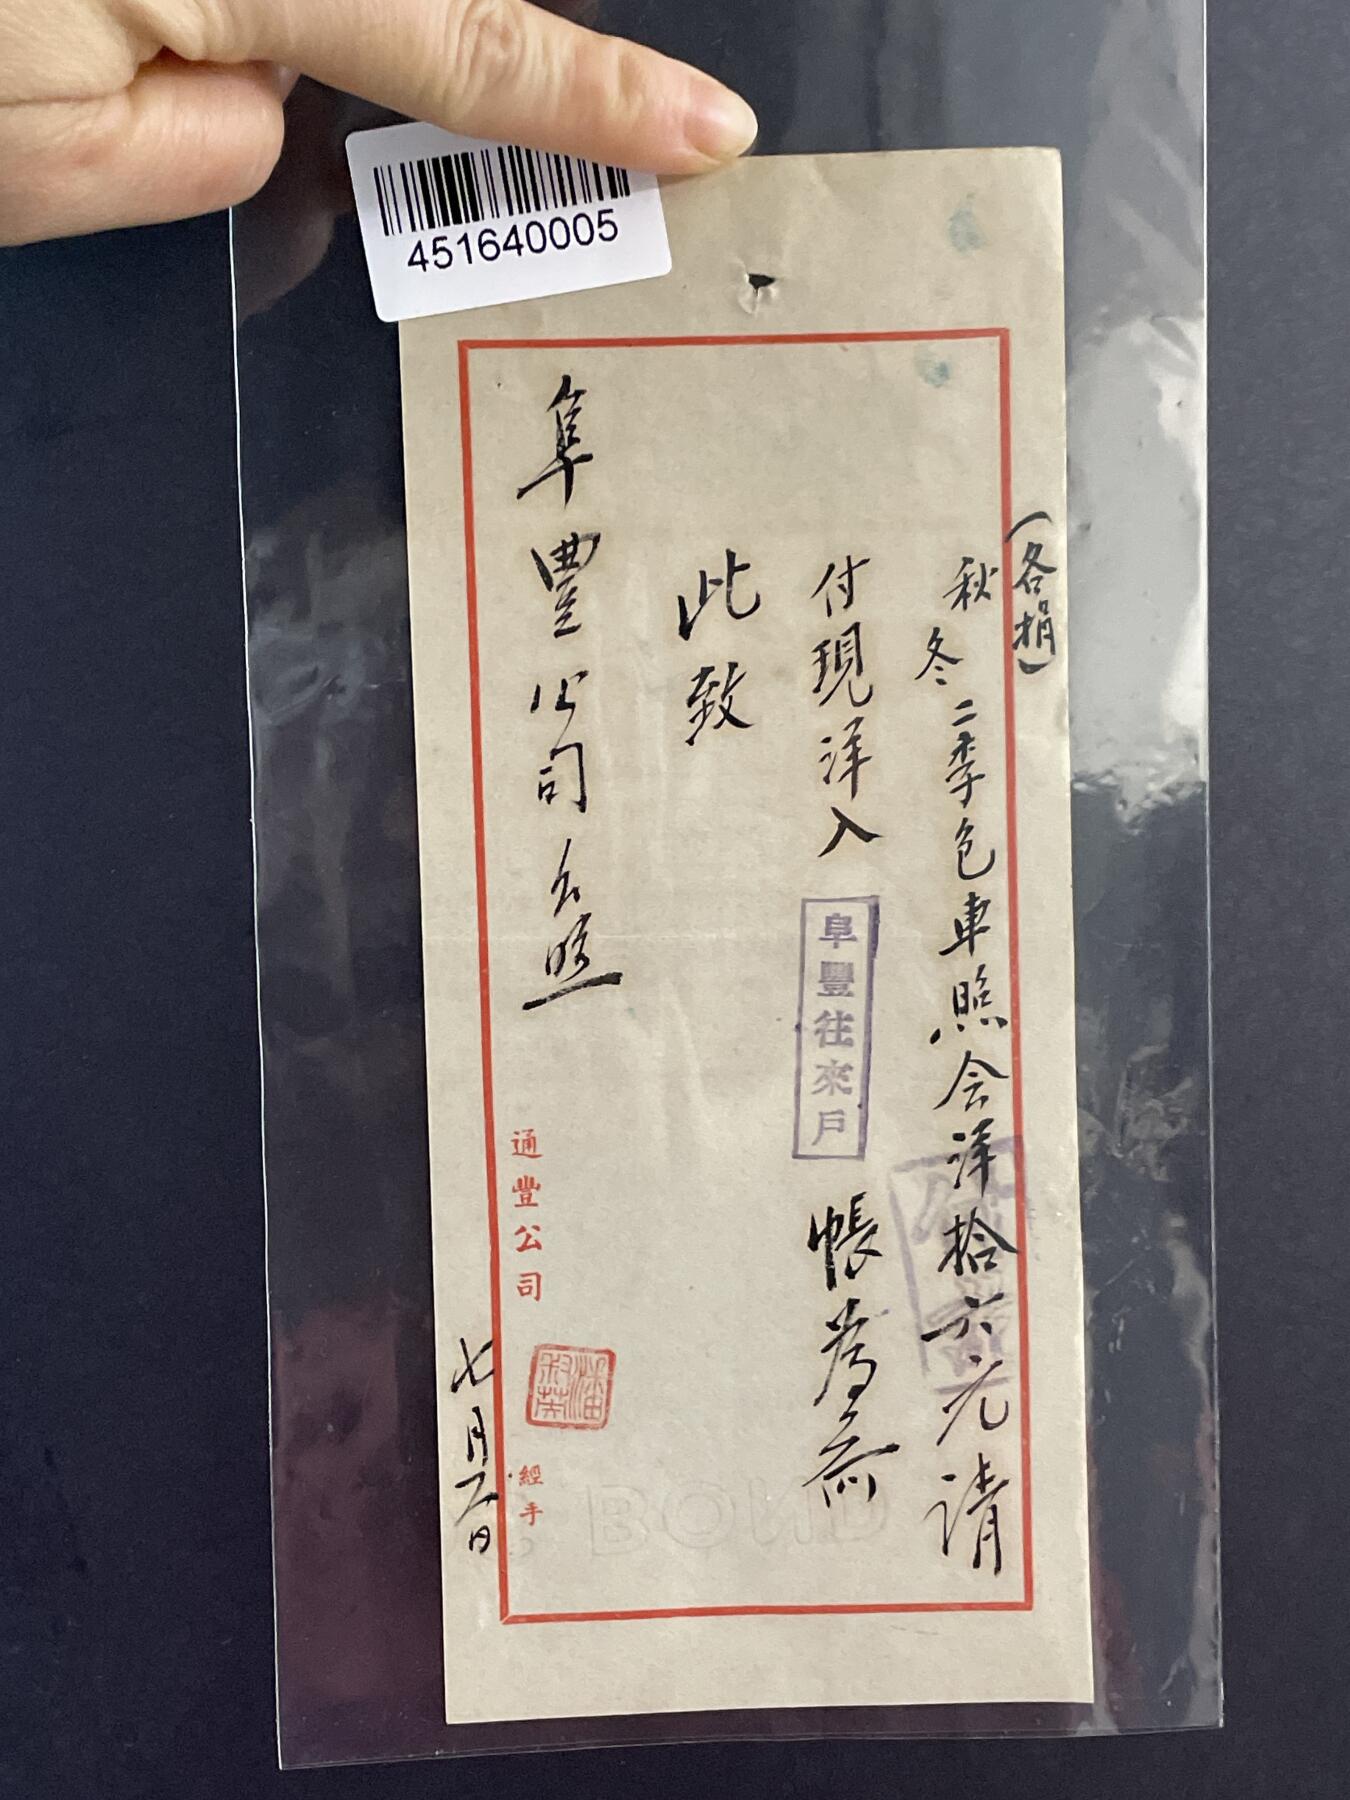 451640005
（各捐）
秋冬二季包車照会洋拾六元請
付現洋入
阜豐往來戶
帳為荷
此致
阜豐公司台照
通豐公司
經手
七月二日
BOND